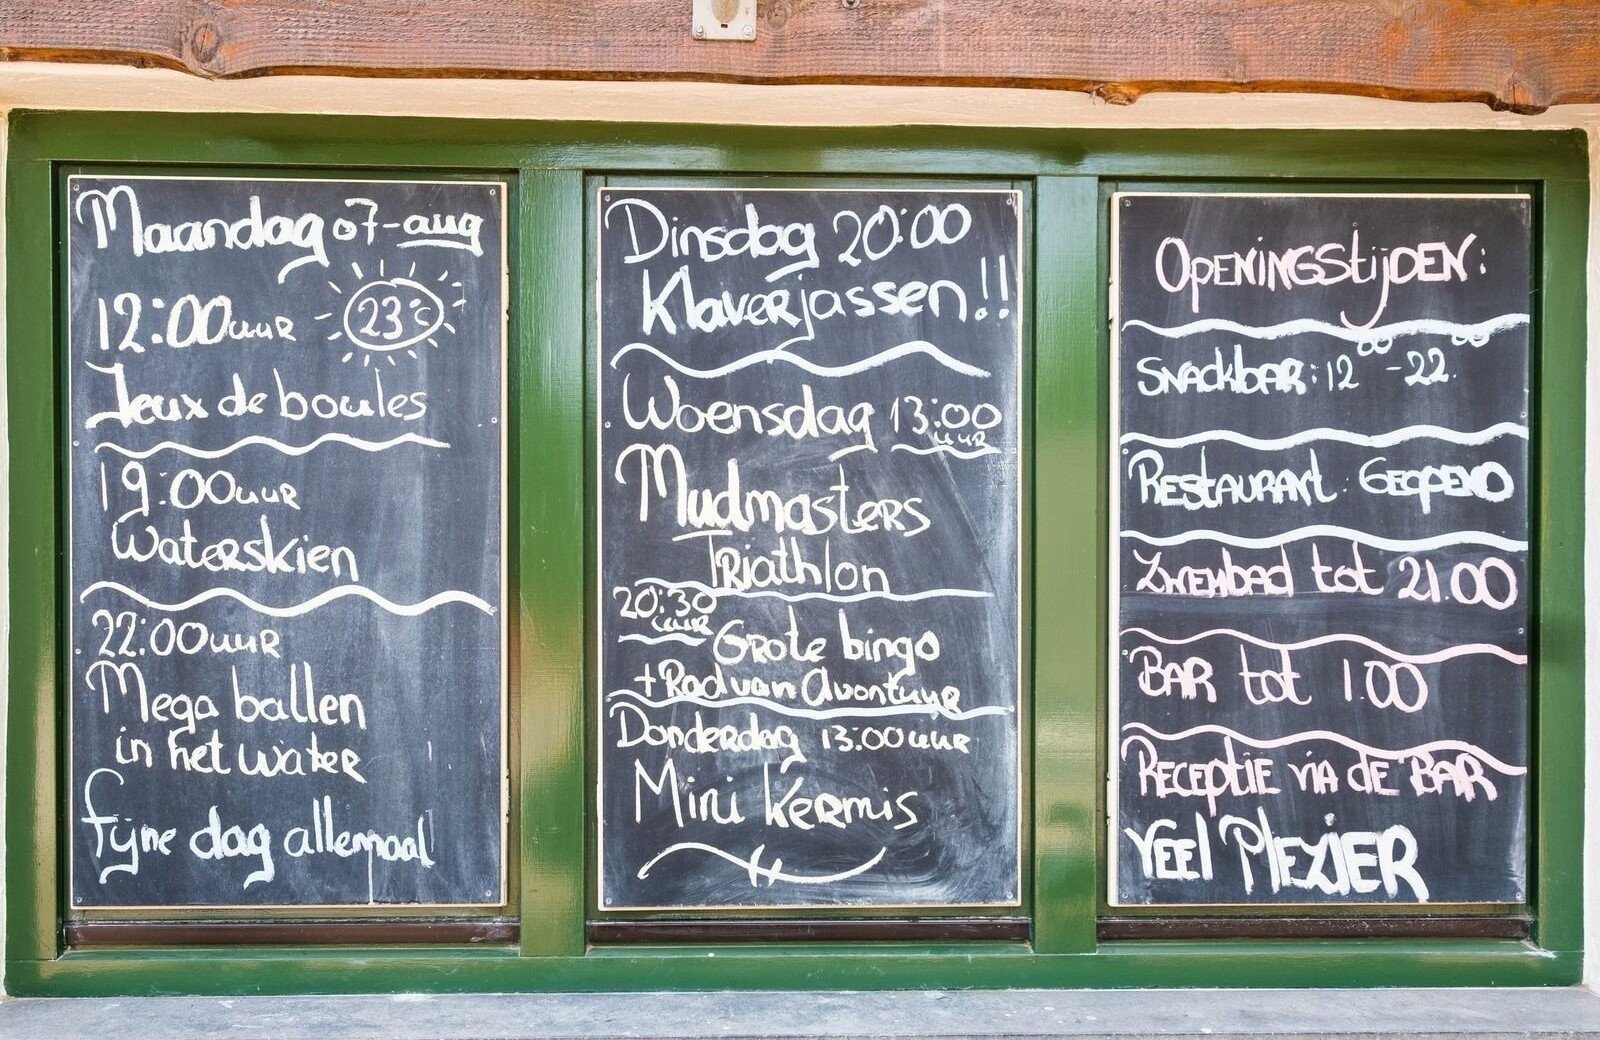 Maandag 07-aug
12:00 uur 23°C
Jeux de boules
19:00 uur
Waterskien
22:00 uur
Mega ballen
in het water
fijne dag allemaal
Dinsdag 20:00
Klaverjassen!!
Woensdag 13:00
uur
Mudmasters
Triathlon
20:30
uur
Grote bingo
+ Rad van Avontuur
Donderdag 13:00 uur
Mini Kermis
OPENINGStijDEN:
SNACKbAR: 12⁰⁰ - 22⁰⁰.
RESTAURANt: GEOPEND
ZWEMbAD tot 21.00
BAR tot 1.00
RECEPtIE VIA dE BAR
VEEl PlEZIER